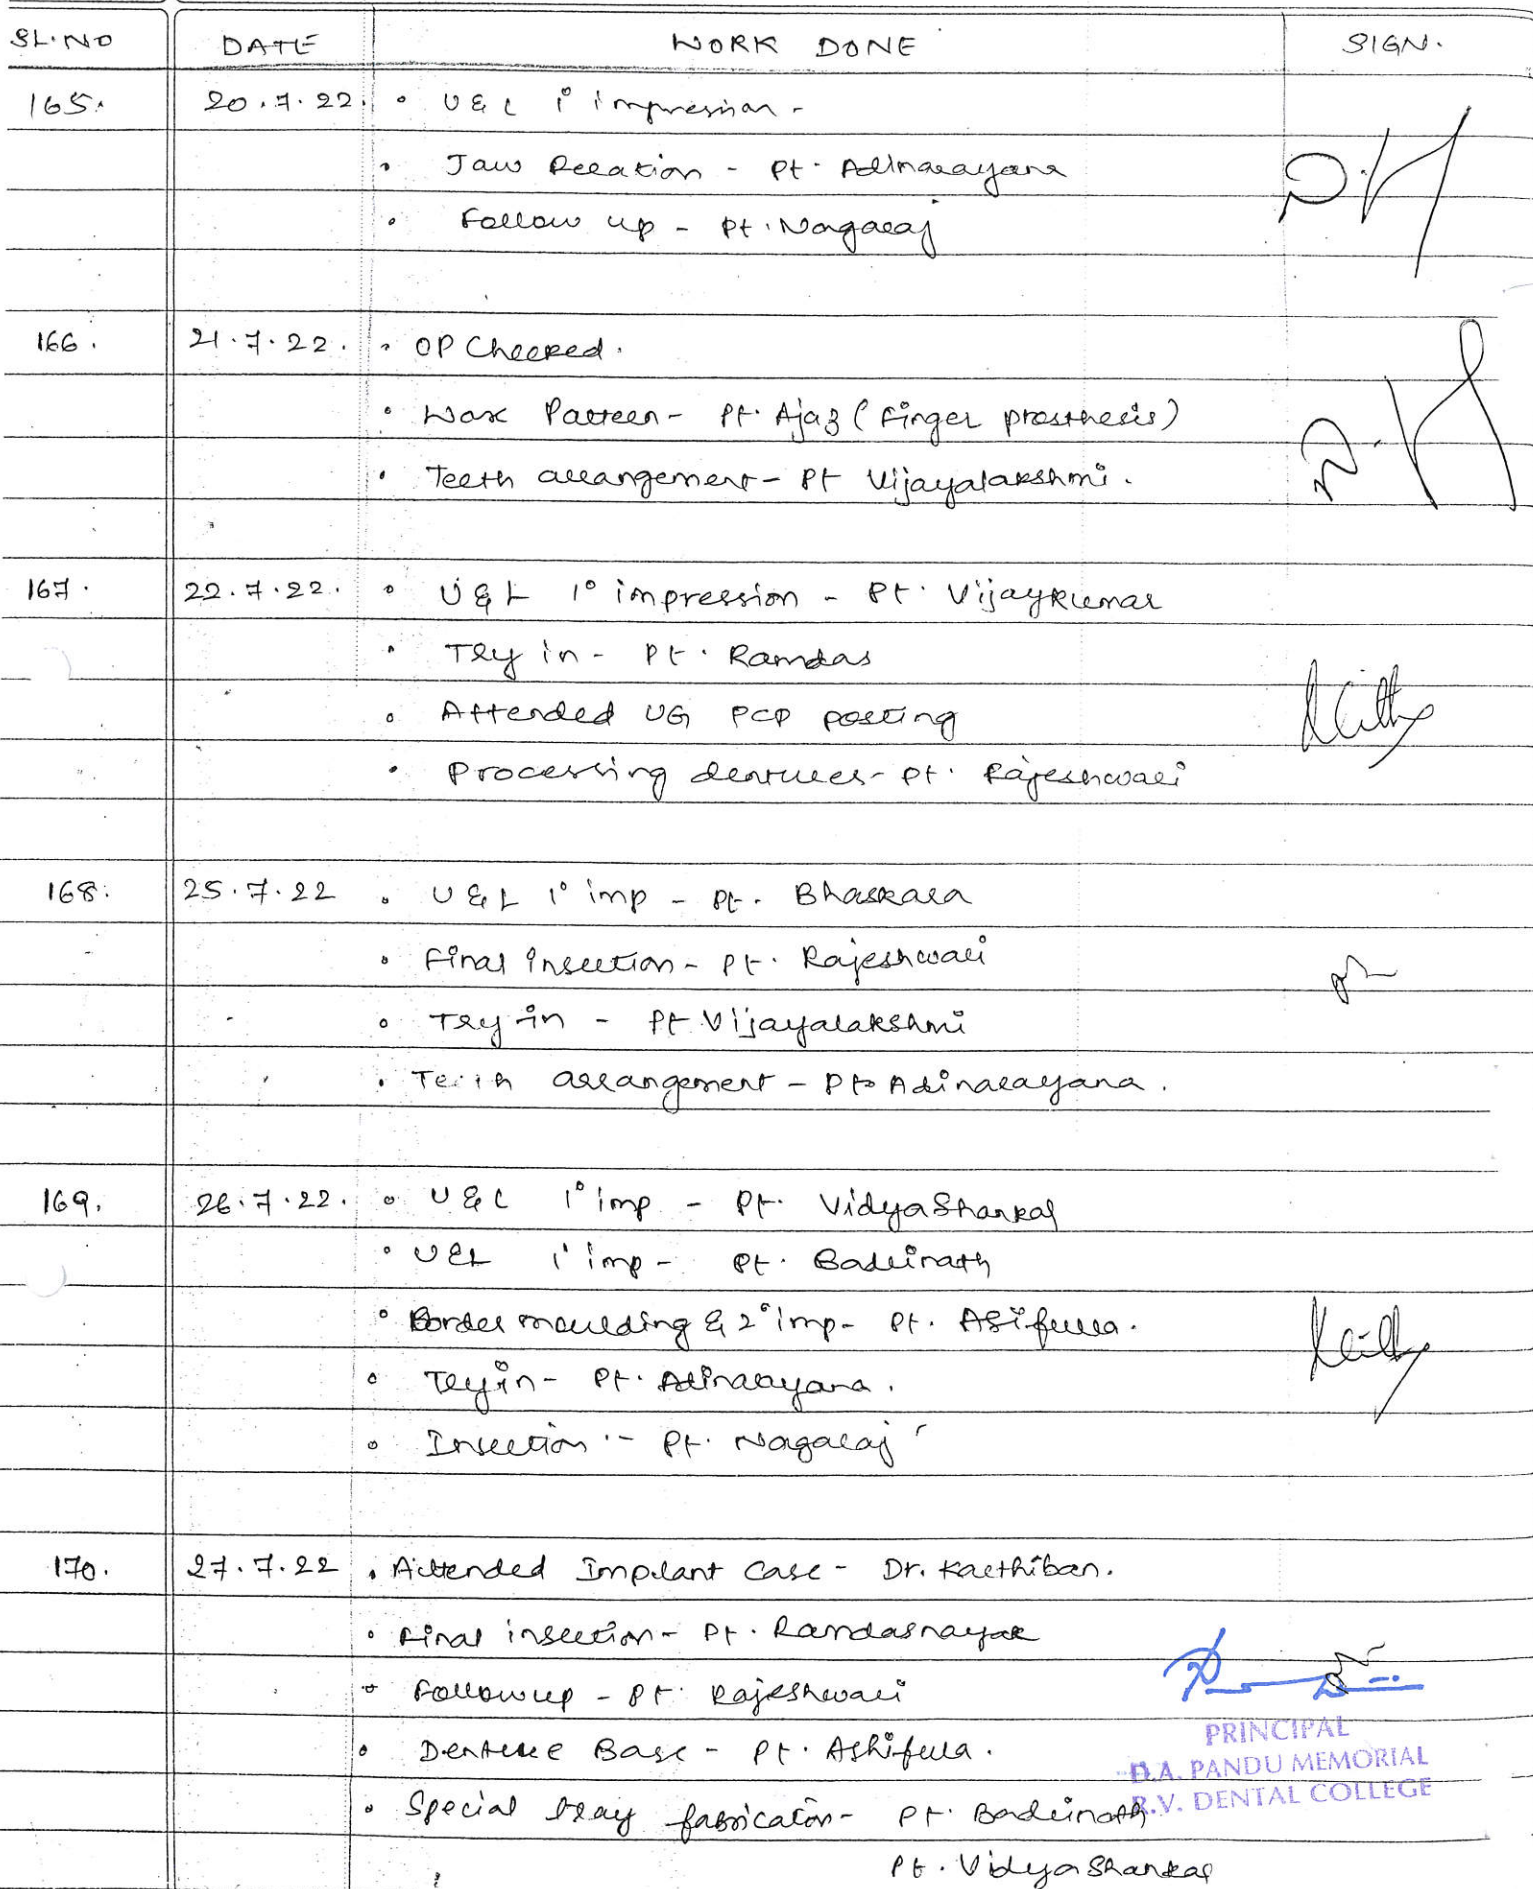 SL.NO DATE WORK DONE SIGN.
165. 20.7.22. • U & L 1° impression -
• Jaw Relation - Pt. Adinarayana
• Follow up - Pt. Nagaraj
166. 21.7.22. • OP Checked.
• Wax Pattern - Pt. Ajaz (Finger prosthesis)
• Teeth arrangement - Pt Vijayalakshmi.
167. 22.7.22. • U & L 1° impression - Pt. Vijaykumar
• Try in - Pt. Ramdas
• Attended UG PCP posting
• Processing dentures - Pt. Rajeshwari
168. 25.7.22 • U & L 1° imp - Pt. Bhaskara
• Final insertion - Pt. Rajeshwari
• Try in - Pt Vijayalakshmi
• Teeth arrangement - Pt Adinarayana.
169. 26.7.22. • U & L 1° imp - Pt. VidyaShankar
• U & L 1° imp - Pt. Badrinath
• Border moulding & 2° imp - Pt. Asifulla.
• Try in - Pt. Adinarayana.
• Insertion - Pt. Nagaraj
170. 27.7.22 • Attended Implant Case - Dr. Karthiban.
• Final insertion - Pt. Ramdasnayak
• Followup - Pt. Rajeshwari
PRINCIPAL
• Denture Base - Pt. Ashifulla.
D.A. PANDU MEMORIAL
R.V. DENTAL COLLEGE
• Special tray fabricaton - Pt. Badrinath
Pt. VidyaShankar